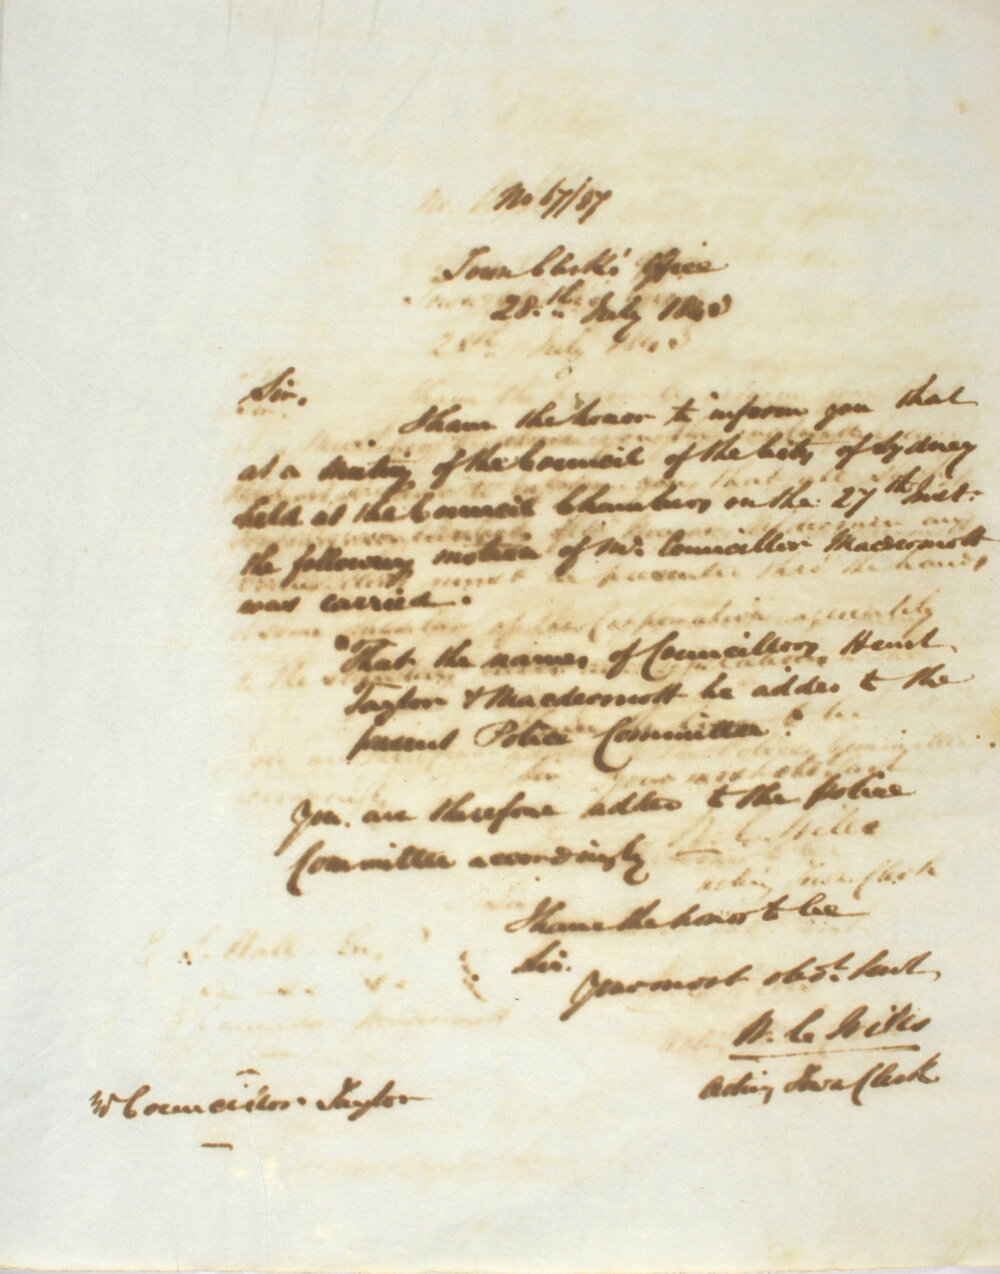 No 67/87
Town Clerk's Office
28th July 1843
Sir,
I have the honor to inform you that
at a Meeting of the Council of the City of Sydney
held at the Council Chambers on the 27th Inst.
the following motion of Mr. Councillor Macdermott
was carried.
"That the names of Councillors
Taylor & Macdermott be added to the
present Police Committee."
You are therefore added to the Police
Committee accordingly
I have the honor to be
Sir.
Your most obdt. Servt,
W. C. Wills
Acting Town Clerk
Mr Councillor Taylor